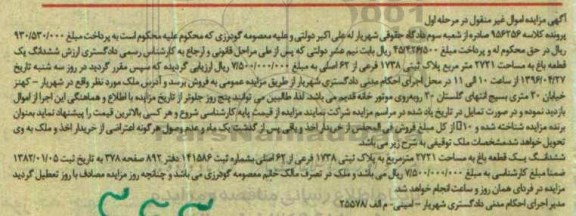 آگهی مزایده اموال غیر منقول در مرحله اول
پرونده کلاسه ۹۵۶۲۵۶ صادره از شعبه سوم دادگاه حقوقی شهریار له علی اکبر دولتی و علیه معصومه گودرزی که محکوم علیه محکوم است به پرداخت مبلغ ۹۳۰/۵۳۰/۰۰۰
ریال در حق محکوم له و پرداخت مبلغ ۴۵/۴۲۶/۵۰۰ ریال بابت نیم عشر دولتی که پس از طی مراحل قانونی و ارجاع به کارشناس رسمی دادگستری ارزش ششدانگ یک
قطعه باغ به مساحت ۲۷۲۱ متر مربع پلاک ثبتی ۱۷۳۸ فرعی از ۶۲ اصلی به مبلغ ۷/۵۰۰/۰۰۰/۰۰۰ ریال ارزیابی گردیده که سپس مقرر گردید در روز سه شنبه تاریخ
۱۳۹۶/۰۴/۲۷ از ساعت ۱۰ الی ۱۱ در محل اجرای احکام مدنی دادگستری شهریار از طریق مزایده عمومی به فروش برسد و آدرس ملک مورد نظر واقع در شهریار - کهنز
خیابان ۳۰ متری بسیج انتهای گلستان ۲۰ روبروی موتور خانه قدیم می باشد. لذا طالبین می توانند پنج روز جلوتر از تاریخ مزایده با اطلاع و هماهنگی این اجرا از اموال
بازدید نموده و در صورت تمایل در تاریخ یاد شده در مراسم مزایده شرکت نمایند. مزایده از قیمت پایه کارشناسی شروع و هر کسی بالاترین قیمت را پیشنهاد نماید بعنوان
برنده مزایده شناخته شده و ۱۰٪ از کل مبلغ فروش فی المجلس از خریدار اخذ و باقی پس از گذشت یک ماه و عدم وصول هرگونه اعتراضی از خریدار اخذ و ملک به وی
تحویل خواهد شد. مشخصات ملک توقیفی به شرح زیر می باشد.
ششدانگ یک قطعه باغ به مساحت ۲۷۲۱ مترمربع به پلاک ثبتی ۱۷۳۸ فرعی از ۶۲ اصلی بشماره ثبت ۱۴۱۵۸۶ دفتر ۸۹۲ صفحه ۳۷۸ به تاریخ ثبت ۱۳۸۲/۰۱/۰۵
ضمنا مبلغ کارشناسی به مبلغ ۷/۵۰۰/۰۰۰/۰۰۰ ریال می باشد و ملک در تصرف مالک خانم معصومه گودرزی می باشد و چنانچه روز مزایده مصادف با روز تعطیل گردید
مزایده در فردای همان روز و ساعت انجام خواهد شد
مدیر اجرای احکام مدنی دادگستری شهریار - امینی - م الف ۲۵۵۷۸